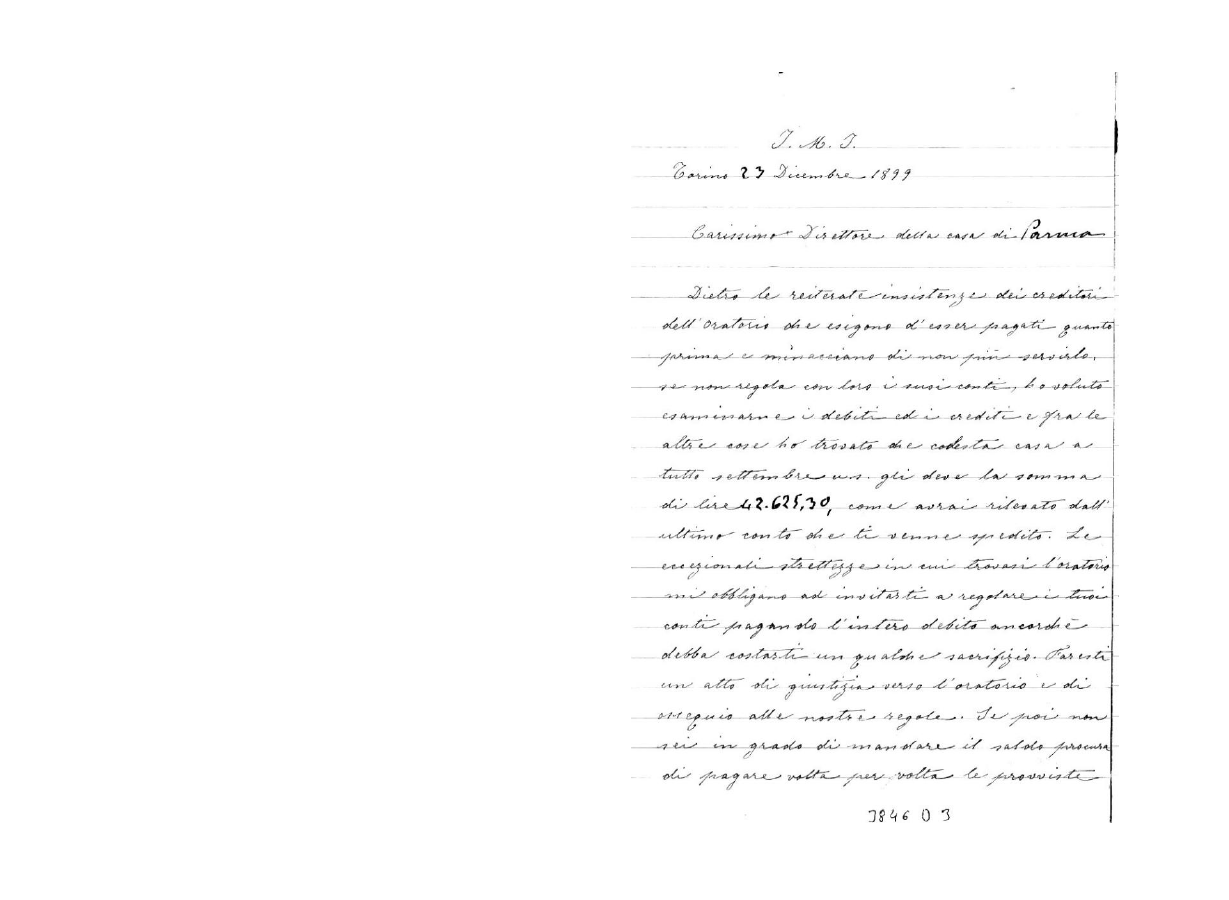 J. M. J.
Torino 23 Dicembre 1899
Carissimo Direttore della casa di Parma
Dietro le reiterate insistenze dei creditori
dell'Oratorio che esigono d'esser pagati quanto
prima e minacciano di non più servirlo,
se non regola con loro i suoi conti, ho voluto
esaminarne i debiti ed i crediti e fra le
altre cose ho trovato che codesta casa a
tutto settembre u.s. gli deve la somma
di lire 42.625,30, come avrai rilevato dall'
ultimo conto che ti venne spedito. Le
eccezionali strettezze in cui trovasi l'oratorio
mi obbligano ad invitarti a regolare i tuoi
conti pagando l'intero debito ancorchè
debba costarti un qualche sacrifizio. Faresti
un atto di giustizia verso l'oratorio e di
ossequio alle nostre regole. Se poi non
sei in grado di mandare il saldo procura
di pagare volta per volta le provviste
3846 D 3